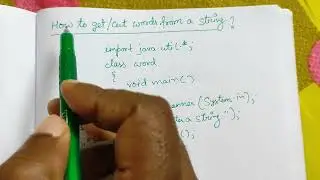 How to get/cut words from a string?
import java.util.*;
class word
{
void main()
(System in);
a string");
();